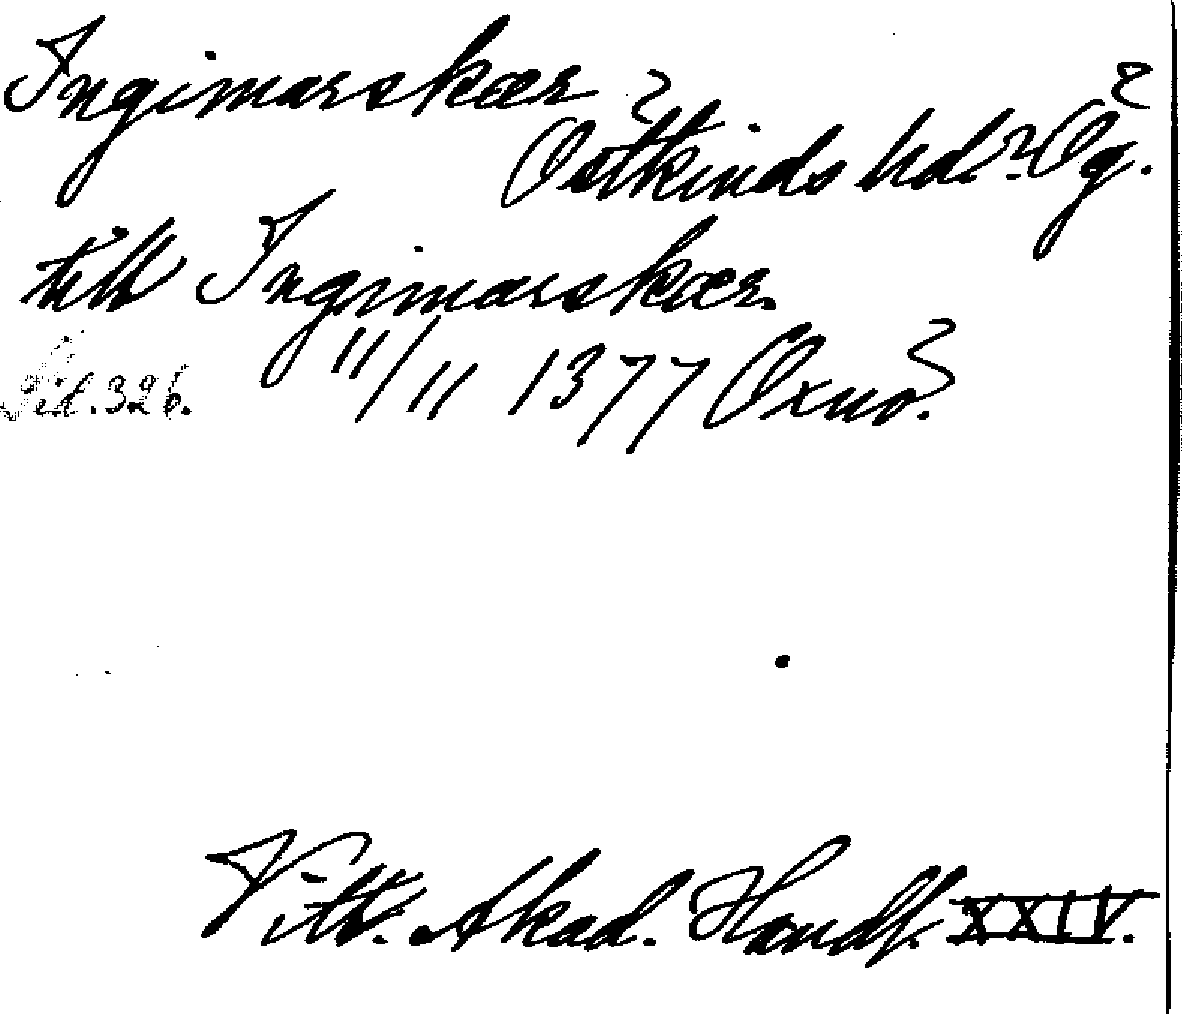 Ingimarskær
Östkinds hd.? Ög.
till Ingimarskær.
Sid. 326. 11/11 1377 Öxnö.
Vitt. Akad. Handl. XXIV.